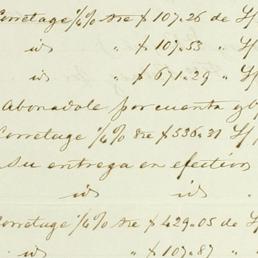 Corretage ⅛% sre $ 107.26 de
id " $ 107.53 "
id " $ 671.29 "
Abonadole por cuenta y
Corretage ⅛% sre $ 536.21
su entrega en efectivo
id id
Corretage ⅛% sre $ 429.05 de
id " $ 107.87 "